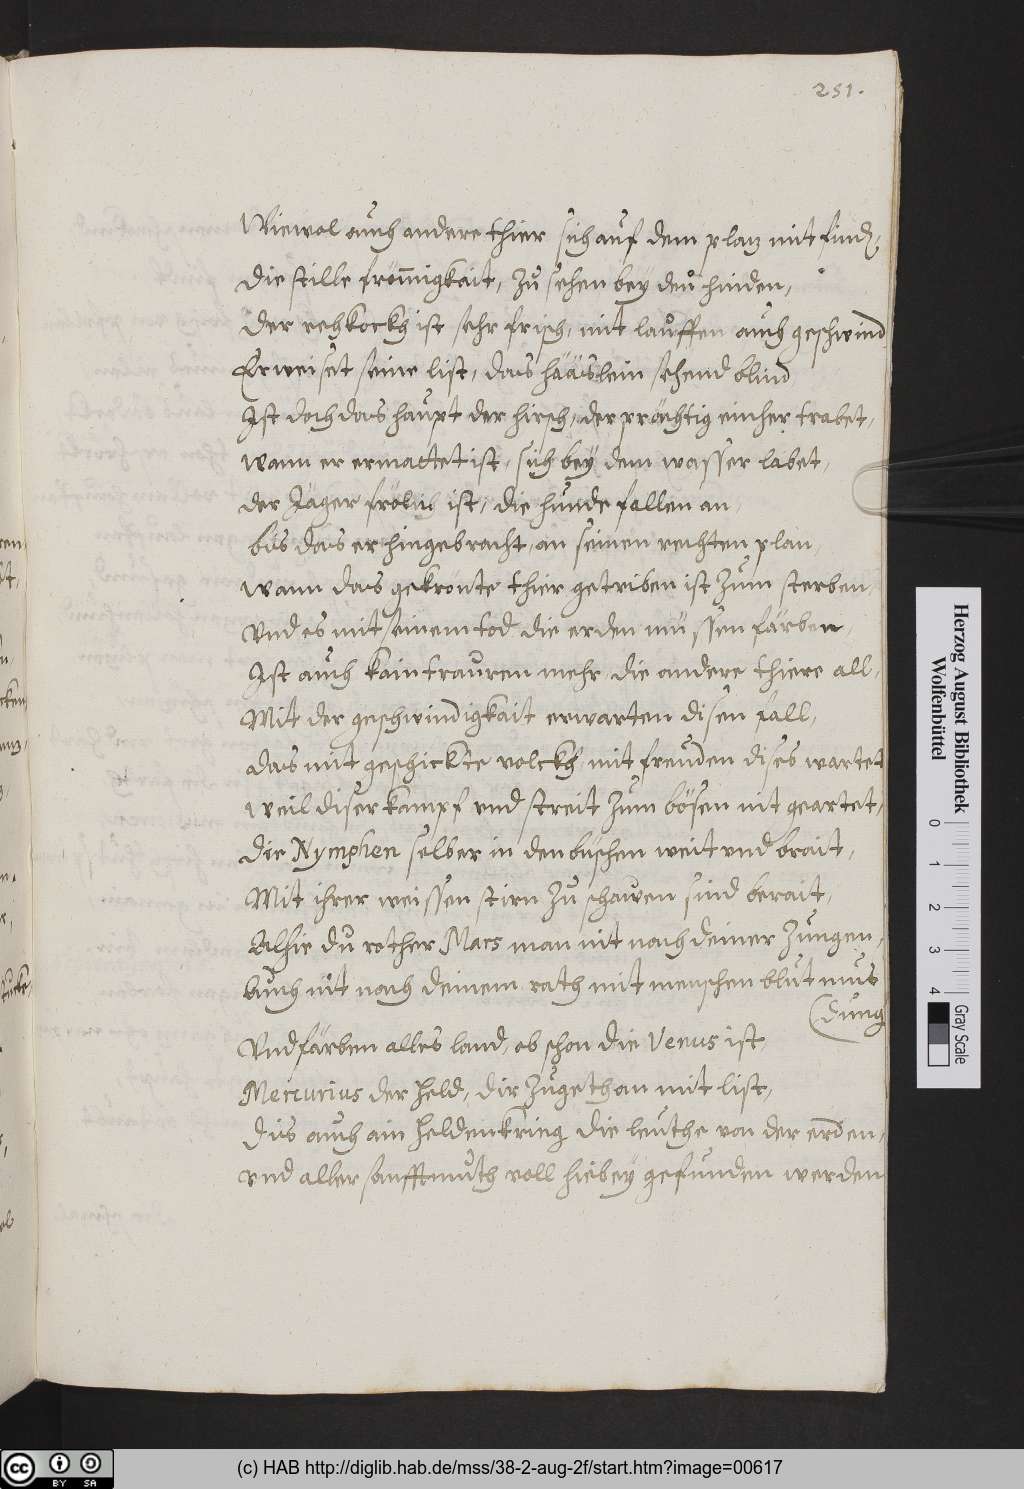 251.
Wiewol auch andere thier sich auf dem platz mit find,
die stille frömigkait, zu sehen bey den hinden,
der rehkockh ist sehr frisch, mit lauffen auch geschwind
Erweiset seine list, das hääslein sehend blind
Ist doch das haupt der hirsch, der prächtig einher trabet,
wann er ermattet ist, sich bey dem wasser labet,
der Jäger frölich ist, die hunde fallen an,
bis das er hingebracht, an seinen rechten plan,
wann das gekrönte thier getriben ist zum sterben,
Vnd es mit seinem tod die erden müssen färben,
Ist auch kain trauren mehr, die andere thiere all,
Mit der geschwindigkait erwarten disen fall,
das mit geschickte volckh mit freuden dises wartet
weil diser kampf vnd streit zum bösen nit geartet,
die Nymphen selber in den büschen weit vnd brait,
Mit ihrer weissen stirn zu schawen sind berait,
Alhie du rother Mars man nit nach deiner Zungen,
Auch nit nach deinem rath mit menschen blut mus
(dung
Vnd färben alles land, ob schon die Venus ist,
Mercurius der held, dir zugethan mit list,
dis auch ain heldenkrieg die leuthe von der erden,
vnd aller sanfftmuth voll hiebey gefunden werden
Herzog August Bibliothek
Wolfenbüttel
0 1 2 3 4
Gray Scale
cc BY SA
(c) HAB http://diglib.hab.de/mss/38-2-aug-2f/start.htm?image=00617